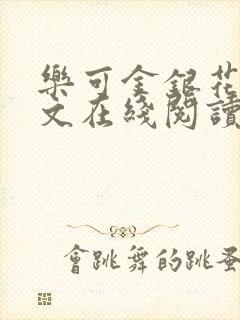 樂可金銀花
文在綫閱讀
會跳舞的跳蚤